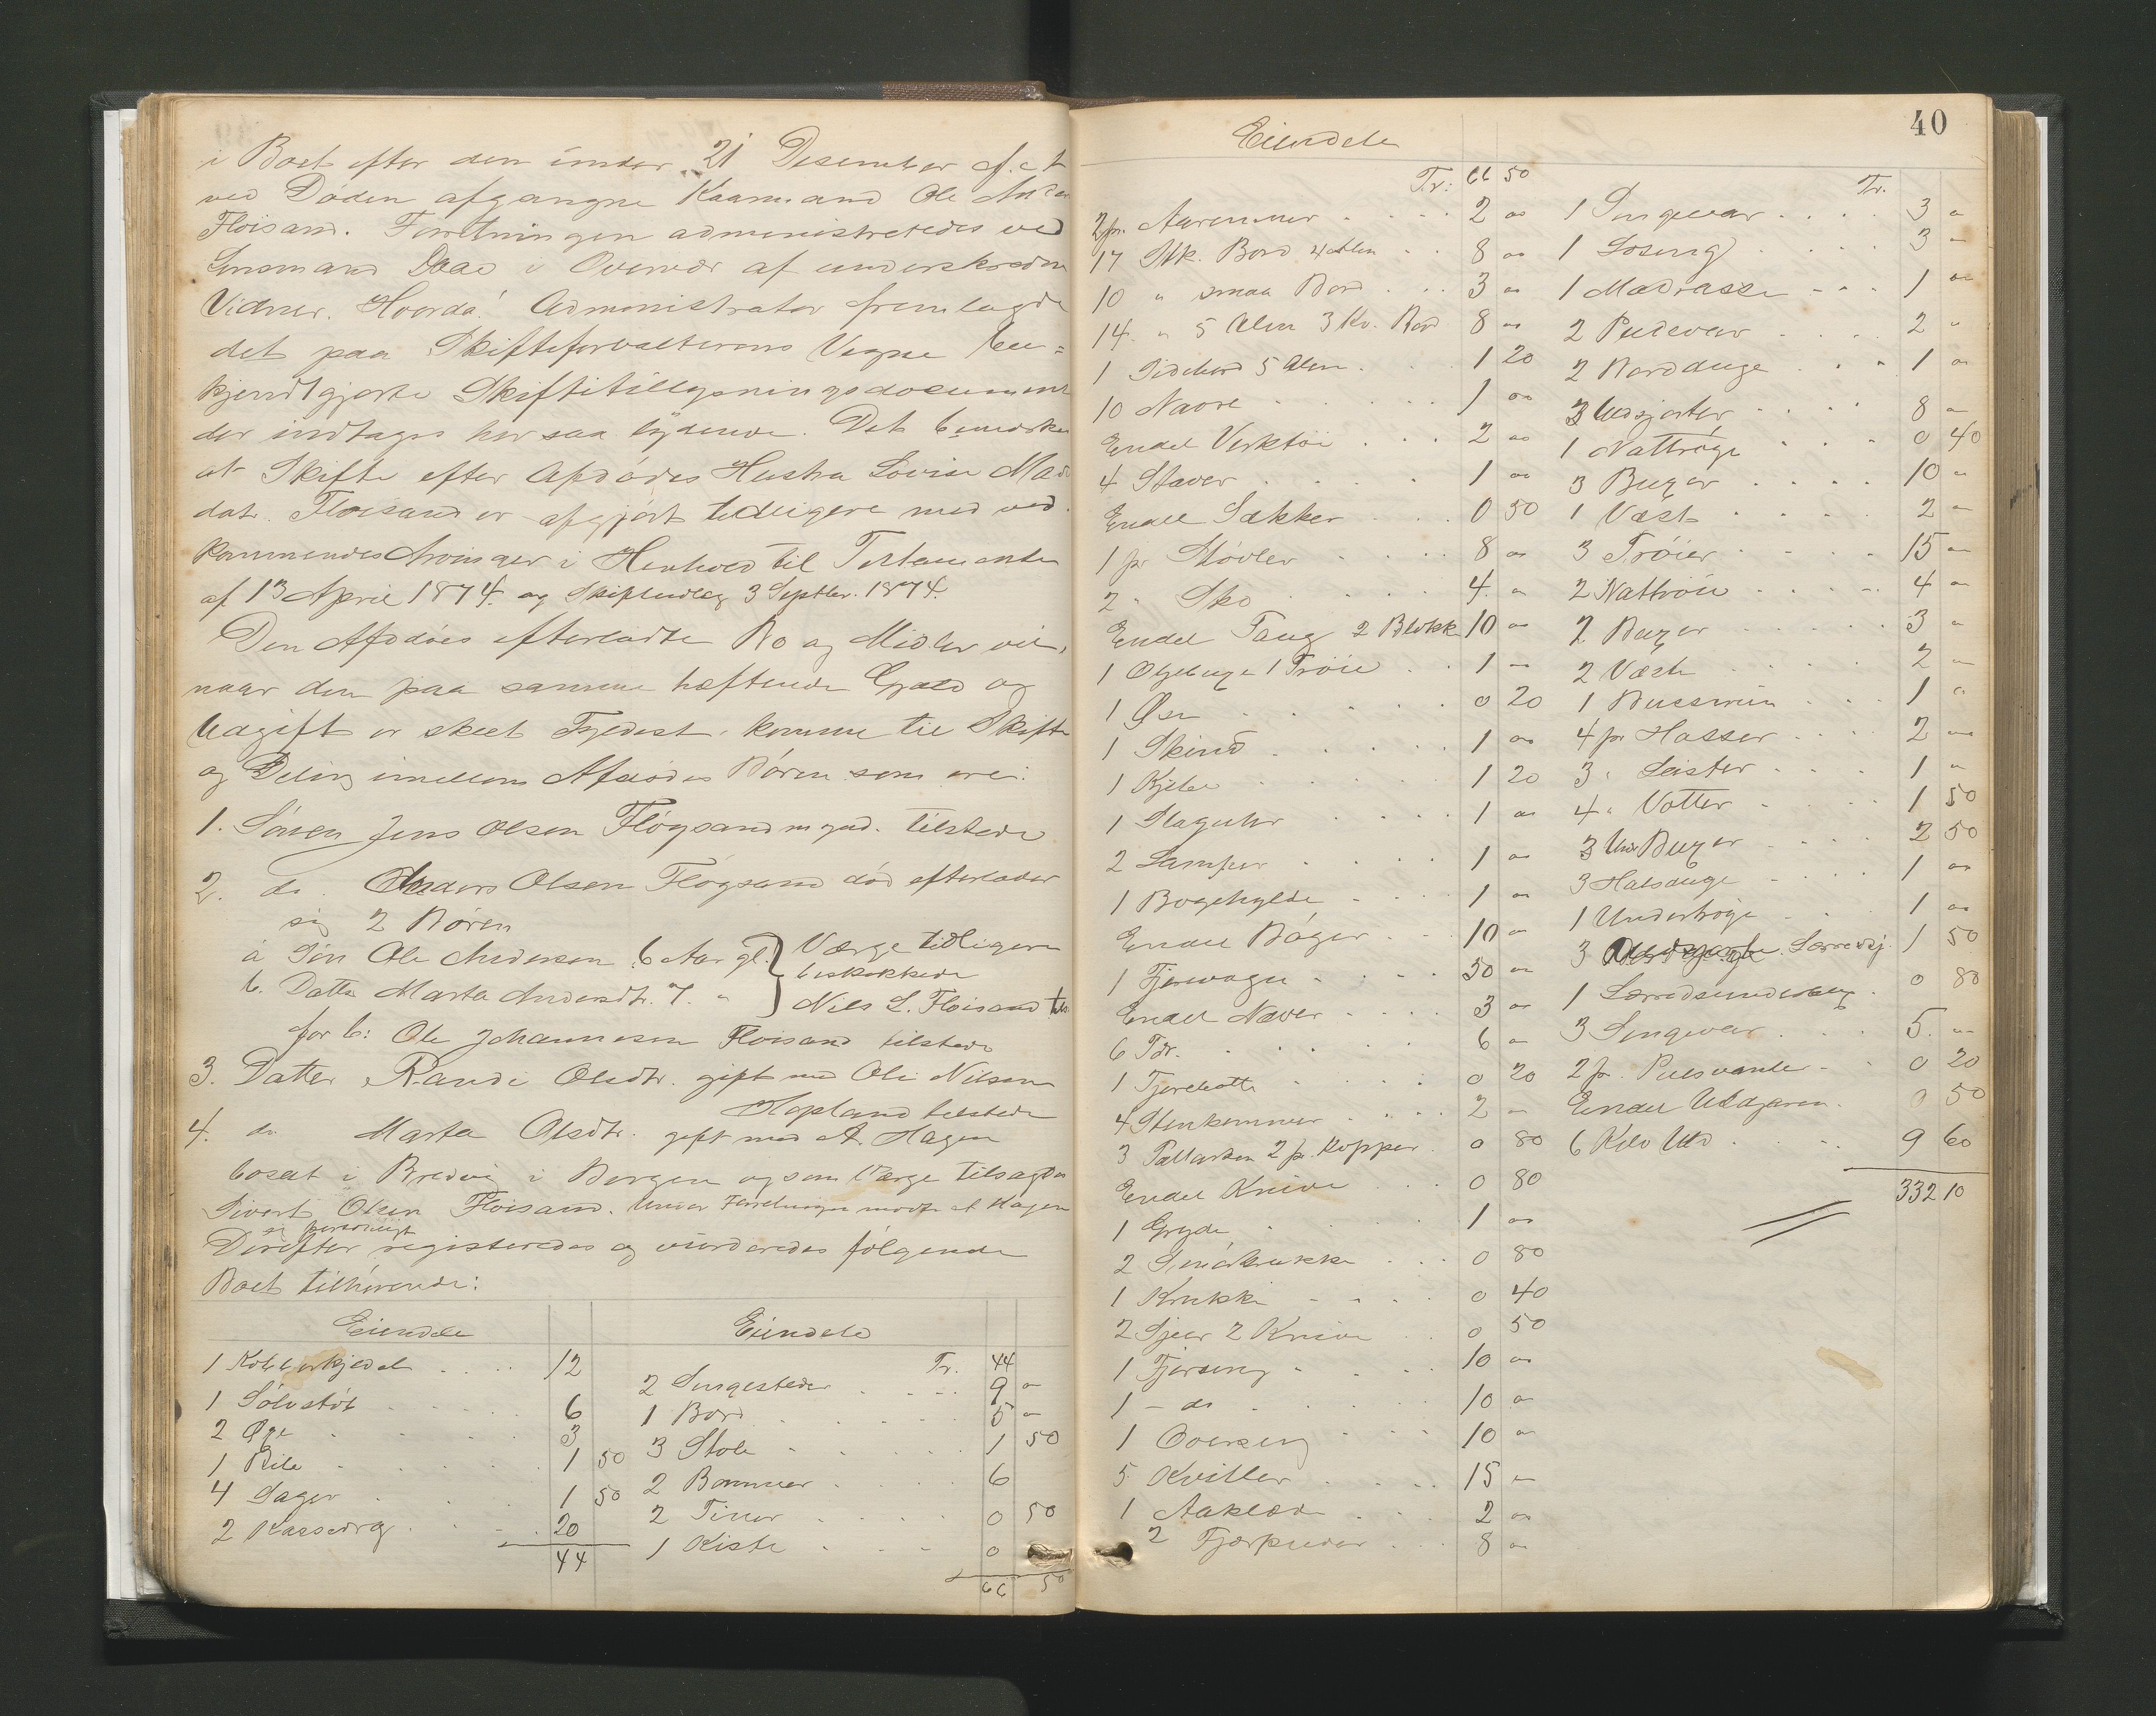 i Boet efter den under 21 Desember f. A
ved Døden afgangne Kaarmand Ole Anders
Floisand. Forretningen administreredes ved
Lensmand Daae i Overvær af underskrevne
Vidner. Hvorda! Administrator fremlagde
det paa Skifteforvalterens Vegne be=
kjendtgjorte Skiftetillysningsdocument
der indtages her saa lydende. Det bemærkes
at Skifte efter Afdødes Hustru Lovise Mads
datr. Floisand er afgjørt tidligere med ved
kommendes Arvinger i Henhold til Testamente
af 13 April 1874. og Skifteudlæg 3 Septbr. 1874.
Den Afdødes efterladte Bo og Midler vil,
naar den paa samme hæftende Gjæld og
Udgift er skeet Fyldest, komme til Skifte
og Deling imellem Afdødes Børen som ere:
1. Sønen Jens Olsen Fløgsand mynd. tilstede
2. do. Anders Olsen Fløgsand død efterlader
sig 2 Børen
a Søn Ole Andersen 6 Aar gl. } Værge tidligere
beskikkede
b. Datter Marta Andersdtr. 7. " } Nils L. Floisand tils
for b: Ole Johannesen Floisand tilstede
3. Datter Randi Olsdtr. gift med Ole Nilsen
Hopland tilstede
4. do Marta Olsdtr. gift med A. Hagen
bosat i Bredvig i Bergen og som Værge tilsagdes
Sivert Olsen Floisand. Under Forretningen mødte A. Hagen
personligt
Derefter registeredes og vurderedes følgende
Boet tilhørende:
Eiendele Eiendele
1 Kobberkjedel 12
1 Sølvstøb 6
2 Øge 3
1 Bile 1 50
4 Sager 1 50
2 Kasse 20
44
Tr. 44
2 Sengesteder 9 "
1 Bord 5 "
3 Stole 1 50
2 Bommer 6
2 Tiner 0 50
1 Kiste 0
66 50
40
Eiendele
Tr: 66 50
2 pr. Aaremmer 2 "
17 Stk. Bord 8 "
10 " smaa Bord 3 "
14 " 5 Alen 3 Kv. Bord 8 "
1 Sidebord 5 Alen 1 20
10 Navre 1 "
Endel Verktøi 2 "
4 Staver 1 "
Endel Sækker 0 50
1 pr Støvler 8 "
2 " Sko 4 "
Endel Taug 2 Blokk 10 "
1 Oljebuxe 1 Trøie 1 "
1 Øse 0 20
1 Skind 1 "
1 Kjeler 1 20
1 Slaguhr 1 "
2 Lamper 1 "
1 Boghylde 1 "
Endel Bøger 10 "
1 Fjervogn 50 "
Endel Næver 3 "
6 Tdr. 6 "
1 Tjerebøtte 0 20
4 Stenkummer 2 "
3 Tallerken 2 pr. Kopper 0 80
Endel Knive 0 80
1 Gryde 1 "
2 Smørkrukke 0 80
1 Krukke 0 40
2 Sjeer 2 Knive 0 50
1 Fjerseng 10 "
1 - do 10 "
1 Overseng 10 "
5 Kvitler 15 "
1 Aaklæde 2 "
2 Fjærpuder 8 "
Tr.
1 Sengevar 3 "
1 Loseng 3 "
1 Madrasse 1 "
2 Pudevar 2 "
2 Borduge 1 "
3 Uldsjorter 8 "
1 Nattrøge 0 40
3 Buxer 10 "
1 Vest 2 "
3 Trøier 15 "
2 Nattrøie 4 "
2 Buxer 3 "
2 Veste 2 "
1 Busserun 1 "
4 pr Hosser 2 "
3 " Leister 1 "
4 " Votter 1 50
3 Und Buxer 2 50
3 Halsduge 1 "
1 Undertrøge 1 "
3 Lærredsj. 1 50
1 Lærredsunderbux 0 80
3 Sengevar 5 "
2 pr. Pulsvanter 0 20
Endel Uldgaren 0 50
6 Kilo Uld 9 60
332 10